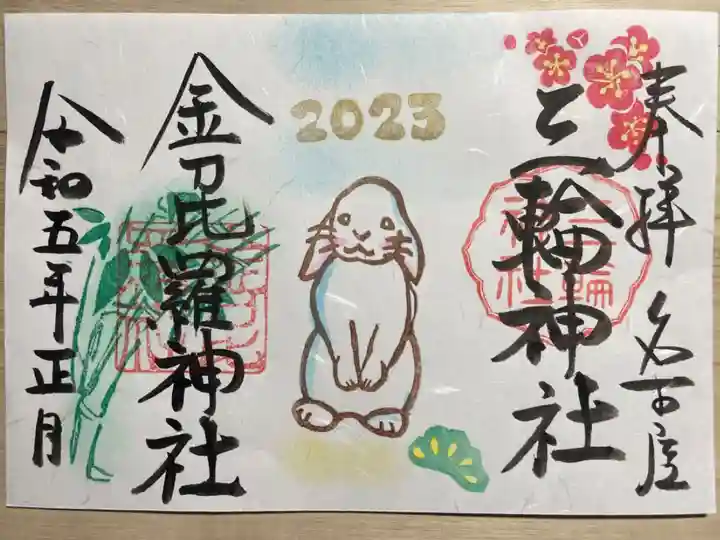 奉拝 名古屋
三輪神社
2023
金刀比羅神社
令和五年正月